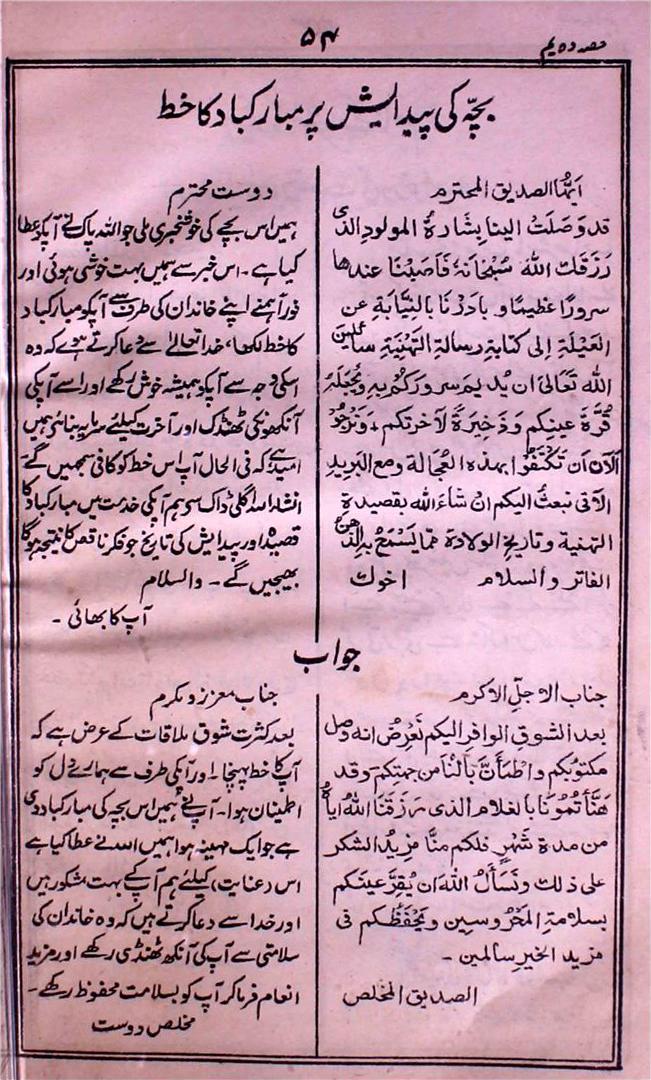 حصہ دہم
۵۴
بچّہ کی پیدایش پر مبارکباد کا خط
اَیُّہَا الصدیق المحترم
قد وَصَلَتْ الینا بِشَارۃُ المولودِ الذی
رَزَقَکَ اللہ سُبْحَانَہٗ فَاَصَبْنَا عندھا
سرورًا عظیمًا و بَادَرْنَا بالنِّیَابَۃِ عن
العَیْلَۃِ اِلٰی کتابۃِ رسالۃِ التَہْنِیَۃِ سائلین
اللہ تَعَالٰی ان یُدیمَ سرورَکُم بہٖ و یَجْعَلَہٗ
قُرَّۃَ عینِکم وَذَخِیرَۃً لِاٰخرتکم ، وَنَرْجُوْ
اَلْاٰنَ اَن تَکْتَفُوْا بہٰذہ العُجَالۃ ومع البریدِ
الاٰتی نبعثُ الیکم ان شاءَ اللہ بقصیدۃِ
التہنیۃ وتاریخِ الولادۃ ممّا یَسْمَحُ بہ الذہن
الفاتر والسلام اخوک
دوست محترم
ہمیں اس بچے کی خوشخبری ملی جو اللہ پاک نے آپکو عطا
کیا ہے۔ اس خبر سے ہمیں بہت خوشی ہوئی اور
فوراً ہمنے اپنے خاندان کی طرف سے آپکو مبارکباد
کا خط لکھا، خدا تعالےٰ سے دعا کرتے ہوئے کہ وہ
اسکی وجہ سے آپکو ہمیشہ خوش رکھے اور اسے آپکی
آنکھونکی ٹھنڈک اور آخرت کیلئے سرمایہ بنائے ہمیں
امید ہے کہ فی الحال آپ اس خط کو کافی سمجھیں گے۔
انشاء اللہ اگلی ڈاک سے ہم آپکی خدمت میں مبارکباد کا
قصیدہ اور پیدایش کی تاریخ جو فکر ناقص کا نتیجہ ہوگا
بھیجیں گے۔ والسلام
آپ کا بھائی ۔
جواب
جناب الاجلِّ الاکرم
بعد الشوقِ الوافر الیکم نَعْرِضُ انہ وصل
مکتوبُکم واطمأنَّ بالُنا من جہتِکم وقد
ھَنَّأْتُمُوْنَا بالغلام الذی رَزَقَنَا اللہُ ایاہُ
من مدۃِ شَہْرٍ فلکم منَّا مزیدُ الشکر
علی ذٰلک ونَسأَلُ اللہَ ان یُقِرَّ عینَکم
بسلامۃِ المَحْرُوسین ویَحْفَظَکم فی
مزید الخیرِ سالمین ۔
الصدیق المخلص
جناب معزز و مکرم
بعد کثرت شوق ملاقات کے عرض ہے کہ
آپ کا خط پہنچا۔ اور آپکی طرف سے ہمارے دل کو
اطمینان ہوا۔ آپنے ہمیں اس بچہ کی مبارکباد دی
ہے جو ایک مہینہ ہوا ہمیں اللہ نے عطا کیا ہے
اس (عنایت) کیلئے ہم آپ کے بہت مشکور ہیں
اور خدا سے دعا کرتے ہیں کہ وہ خاندان کی
سلامتی سے آپ کی آنکھ ٹھنڈی رکھے اور مزید
انعام فرما کر آپ کو بسلامت محفوظ رکھے۔
مخلص دوست